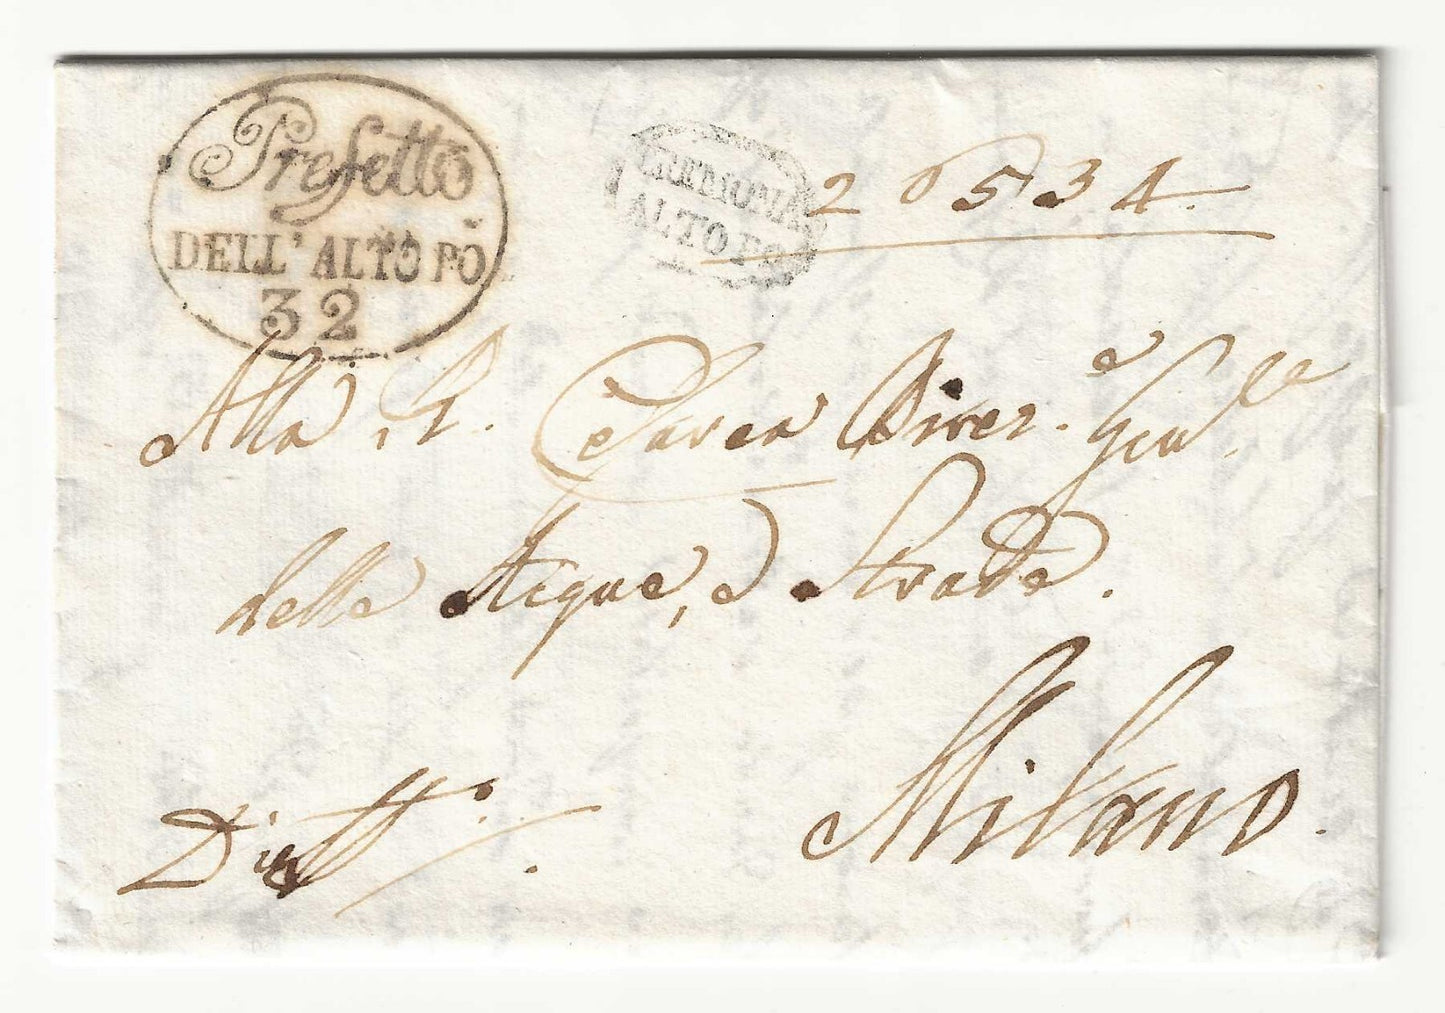 Prefetto
DELL' ALTO PÒ
32
CREMONA
ALTO PO
20534.
Alla R. Cesarea Direz.e Gen.le
delle Acque, e Strade.
Milano.